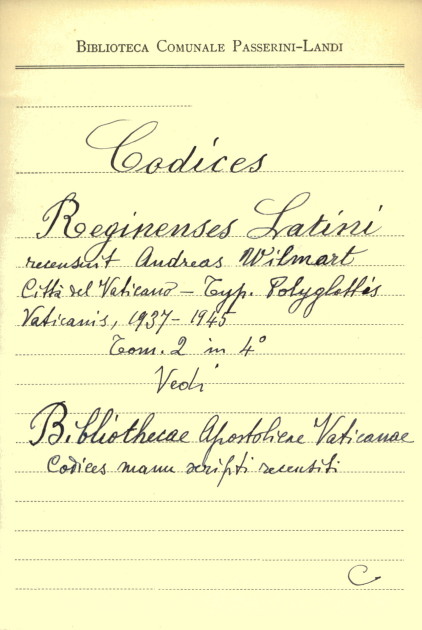 BIBLIOTECA COMUNALE PASSERINI-LANDI
Codices
Reginenses Latini
recensuit Andreas Wilmart
Città del Vaticano - Typ. Polyglottis
Vaticanis, 1937-1945
Tom. 2 in 4°
Vedi
Bibliothecae Apostolicae Vaticanae
Codices manu scripti recensiti
C